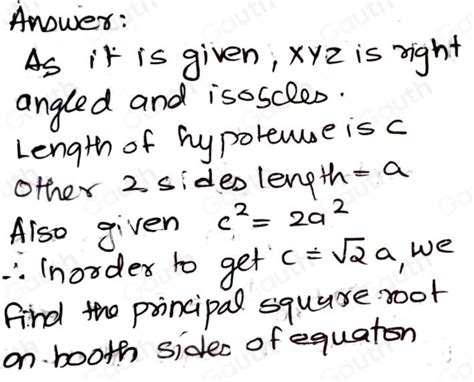 Answer:
As it is given, XYZ is right
angled and isoscles.
Length of hypotenuse is c
Other 2 sides length = a
Also given c² = 2a²
∴ Inorder to get c = √2 a, we
find the principal square root
on booth sides of equaton